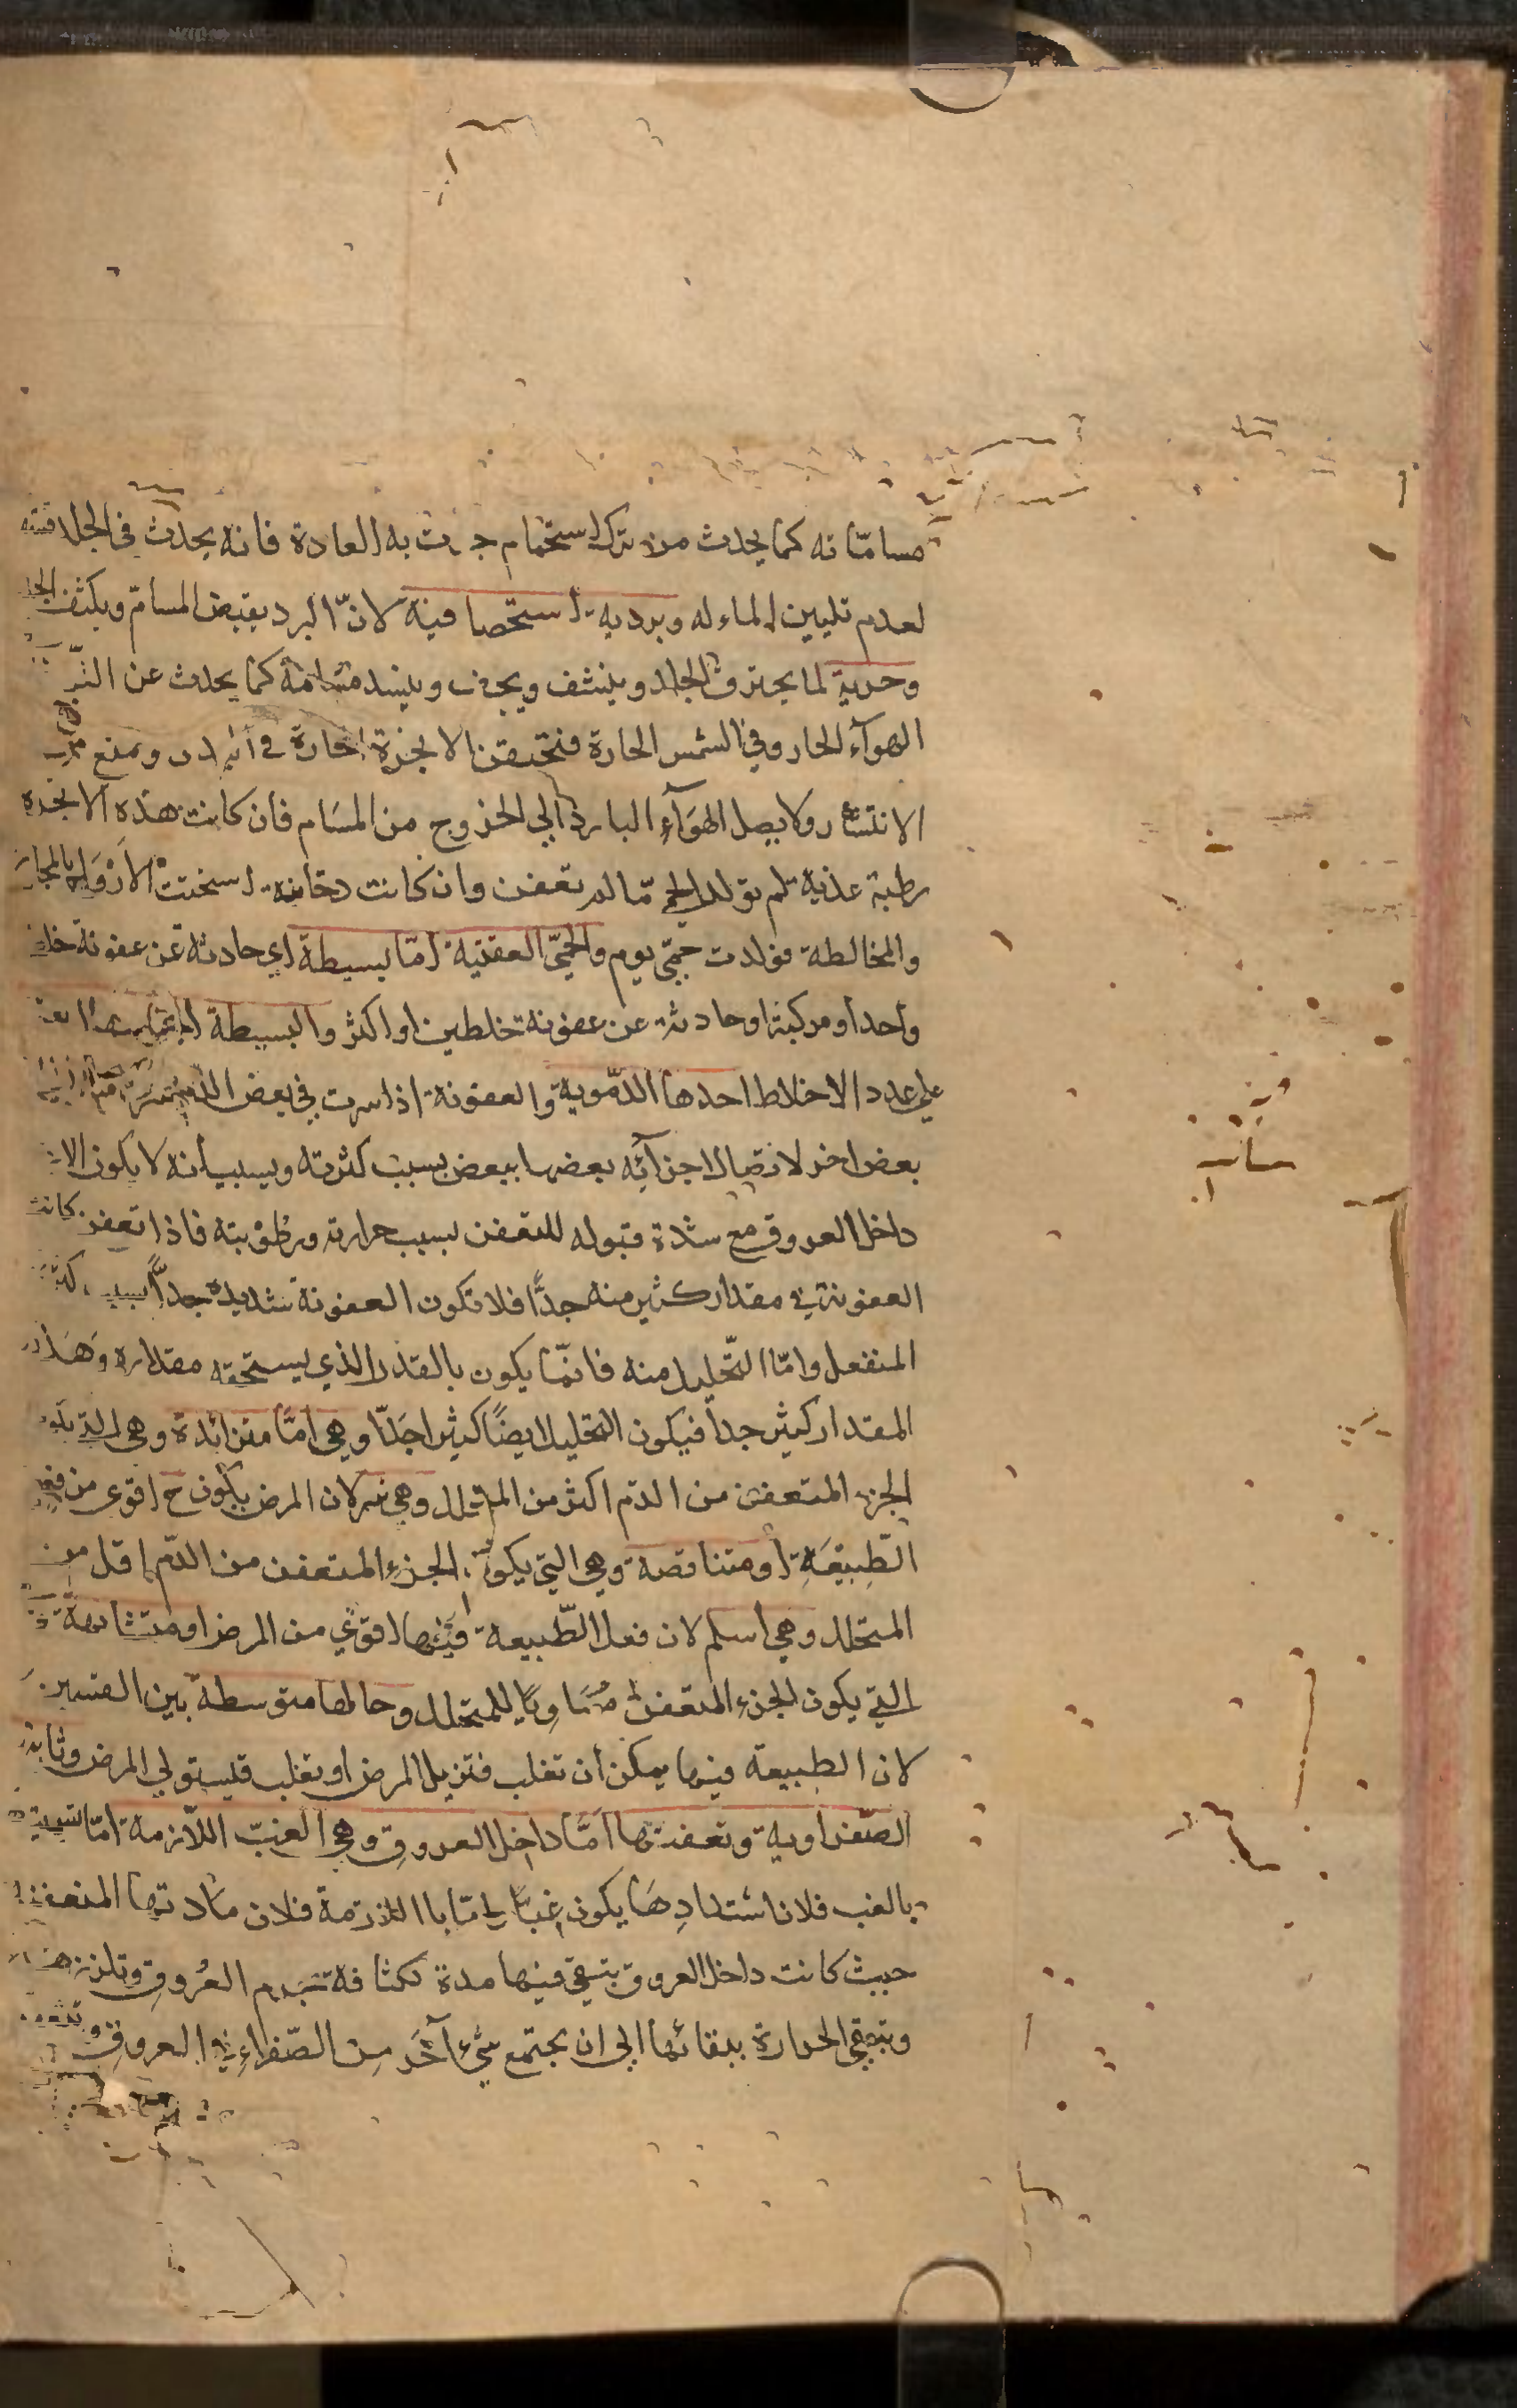 مساماته كما يحدث من ترك استحمام جرت به العادة فانه يحدث في الجلد
لعدم تليين الماء له وبرديه استحصافية لانّ البرد يقبض المسامّ ويكثف الجلد
وحرية لما يحترق الجلد وينشف ويجف وينسد مسامه كما يحدث عن
الهوآء الحار وفي الشمس الحارة فتحتقن الابخرة الحارة في ومنع
الانتشار ولا يصل الهوآء البارد الي الخروج من المسام فان كانت هذه الابخرة
رطبة عذبة لم تولد الحمى مالم تعفن وان كانت دخانية اسخنت الارواح بالمجاورة
والمخالطة فولدت حمّى يوم والحمّيّ العفنية امّا بسيطة اي حادثة عن عفونة خلط
واحد او مركبة او حادثة عن عفونة خلطين او اكثر والبسيطة
علي عدد الاخلاط احدها الدّموية والعفونة اذا سرت في بعض الدم
بعض اخر لاتصال اجزآئه بعضها ببعض بسبب كثرته وبسبب أنه لا يكون الا
داخل العروق مع شدة قبوله للتعفن بسبب حرارته ورطوبته فاذا تعفن كانت
العفونة في مقدار كثير منه جدًّا فلا تكون العفونة شديدة جدًّا بسبب كثرة
المنفعل وامّا التّحليل منه فانمّا يكون بالقدر الذي يستحقه مقداره وهذا
المقدار كثير جداً فيكون التحليل ايضًا كثيرا جدّا وهي امّا متزائدة وهي التي يكون
الجزء المتعفن من الدّم اكثر من المتحلل وهي شر لان المرض يكون ح اقوى من فعل
الطّبيعَةِ او متناقصة وهي التي يكون الجزء المتعفن من الدّم اقل من
المتحلل وهي أسلم لان فعل الطّبيعة فيها اقوي من المرض او متشابهة
التي يكون الجزء المتعفن مُساويًا للمتحلل وحالها متوسطة بين القسمين
لان الطبيعة فيها يمكن أن تغلب فتزيل المرض او تغلب فيستولي المرض وثانيها
الصّفراوية وتعفنها امّا داخل العروق وهي الغبّ اللّازمة امّا تسميتها
بالغب فلان اشتدادِهَا يكون غبًّا وامّا باللازمة فلان مَادتها المتعفنة
حيث كانت داخل العروق بتبقي فيها مدة لكثافة جرم العُروق وتلزز
وتبقي الحرارة ببقائها الي ان يجتمع شيءٌ آخَر مِن الصّفراءِ في العروق